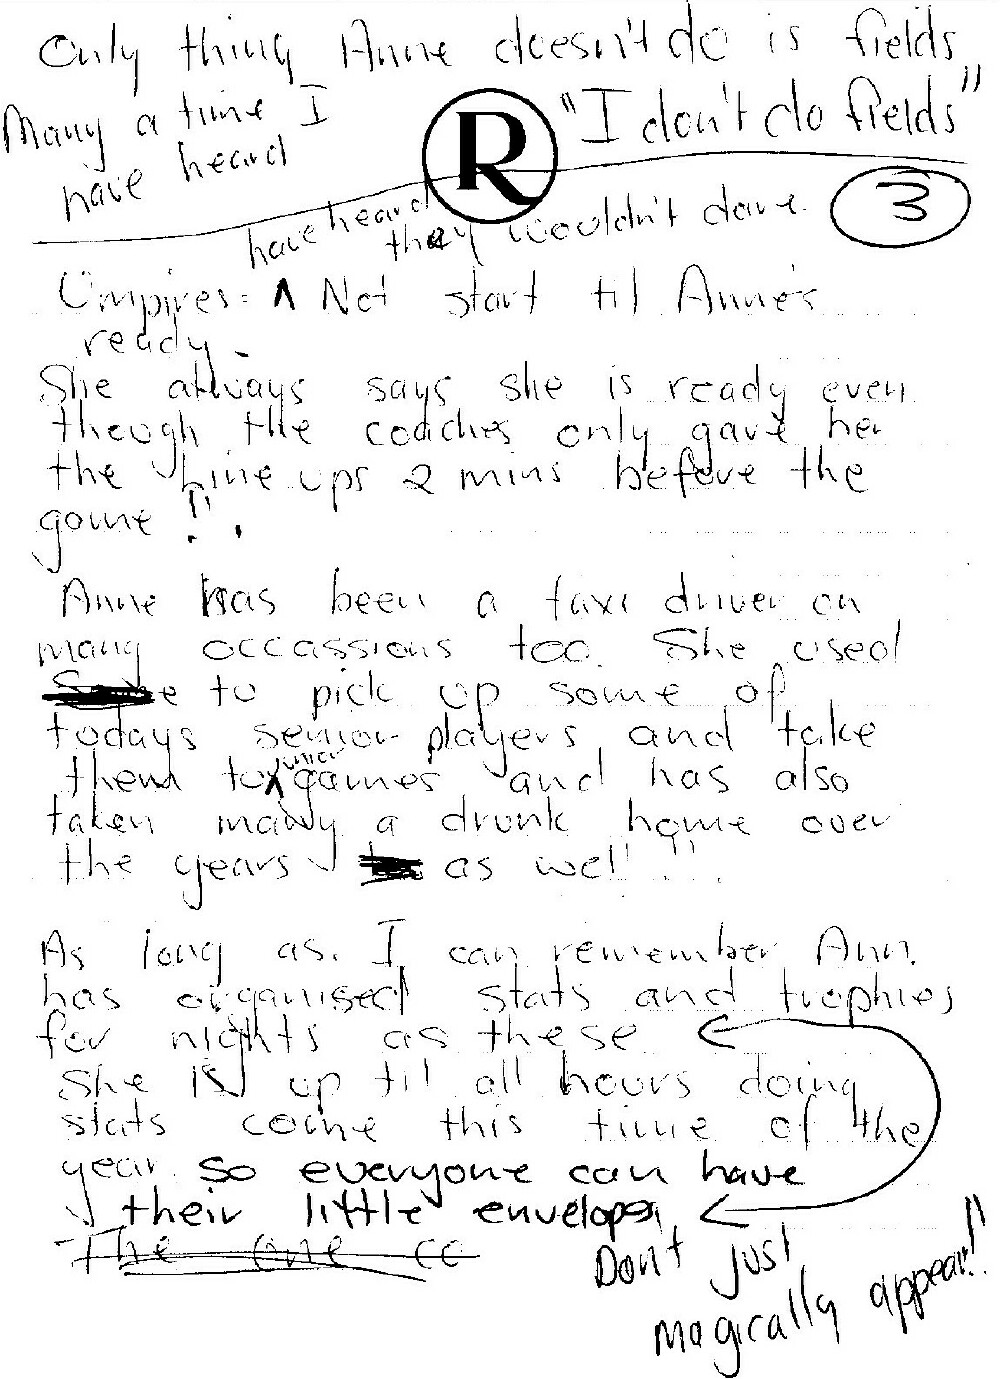 Only thing Anne doesn't do is fields
Many a time I
have heard
"I don't do fields"
R
3
have heard they wouldn't dare.
Umpires: ^ Not start til Anne's
ready.
She always says she is ready even
though the coaches only gave her
the Line ups 2 mins before the
game!!
Anne has been a taxi driver on
many occassions too. She used
to pick up some of
todays senior players, and take
them to junior games and has also
taken many a drunk home over
the years as well!!
As long as I can remember Ann
has organised stats and trophies
for nights as these
She is up til all hours doing
stats come this time of the
year. so everyone can have
their little envelopes,
The one co
Don't just
magically appear!!